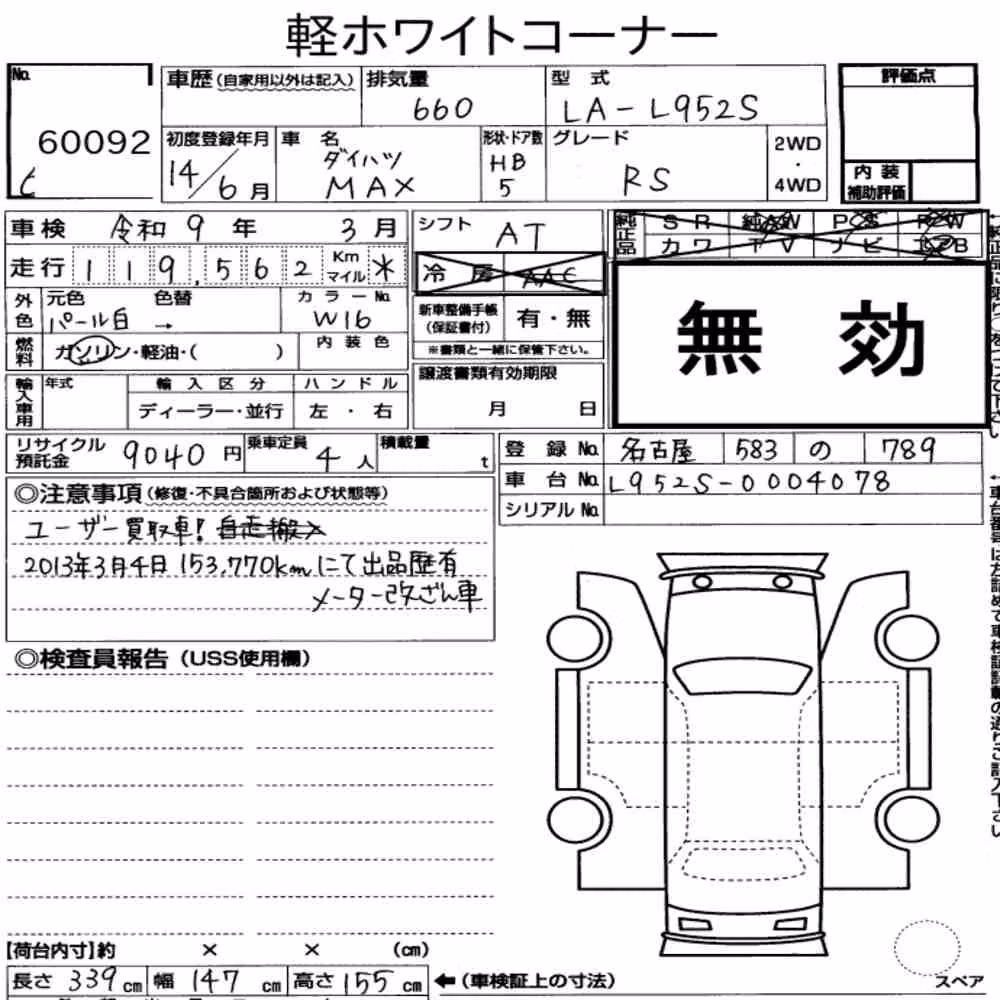 軽ホワイトコーナー
No. 60092
車歴(自家用以外は記入)
排気量 660
型式 LA-L952S
評価点
初度登録年月 14/6月
車名 ダイハツ MAX
形状・ドア数 HB 5
グレード RS
2WD・4WD
内装補助評価
車検 令和9年3月
シフト AT
純正品 SR 純AW PCS PW
カワ TV ナビ
走行 119,562 Km マイル *
冷房 AAC
無効
外色 元色 パール白 色替 →
カラーNo. W16
新車整備手帳(保証書付) 有・無
※書類と一緒に保管下さい。
燃料 ガソリン・軽油・( )
内装色
輸入車用 年式
輸入区分 ディーラー・並行
ハンドル 左・右
譲渡書類有効期限
月 日
リサイクル預託金 9040円
乗車定員 4人
積載量 t
登録No. 名古屋 583 の 789
車台No. L952S-0004078
シリアルNo.
◎注意事項(修復・不具合箇所および状態等)
ユーザー買取車! 自走搬入
2013年3月4日 153,770kmにて出品歴有
メーター改ざん車
◎検査員報告(USS使用欄)
【荷台内寸】約 × × (cm)
長さ 339cm 幅 147cm 高さ 155cm
←(車検証上の寸法)
スペア